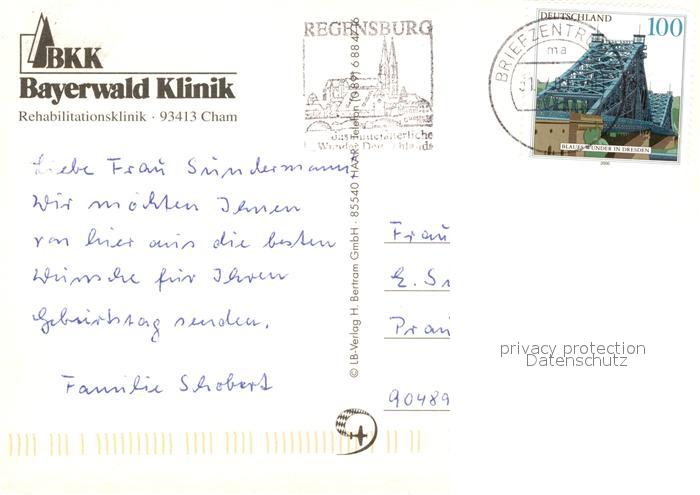 BKK
Bayerwald Klinik
Rehabilitationsklinik · 93413 Cham
REGENSBURG
das mittelalterliche
Wunder Deutschlands
BRIEFZENTR
31
ma
DEUTSCHLAND
100
BLAUES WUNDER IN DRESDEN
2000
Liebe Frau Sundermann,
Wir möchten Ihnen
von hier aus die besten
Wünsche für Ihren
Geburtstag senden.
Familie Schobert
© LB-Verlag H. Bertram GmbH · 85540 HAAR · Telefon (0 89) 6 88 47 76
Frau
E. Su
Prau
90489
privacy protection
Datenschutz